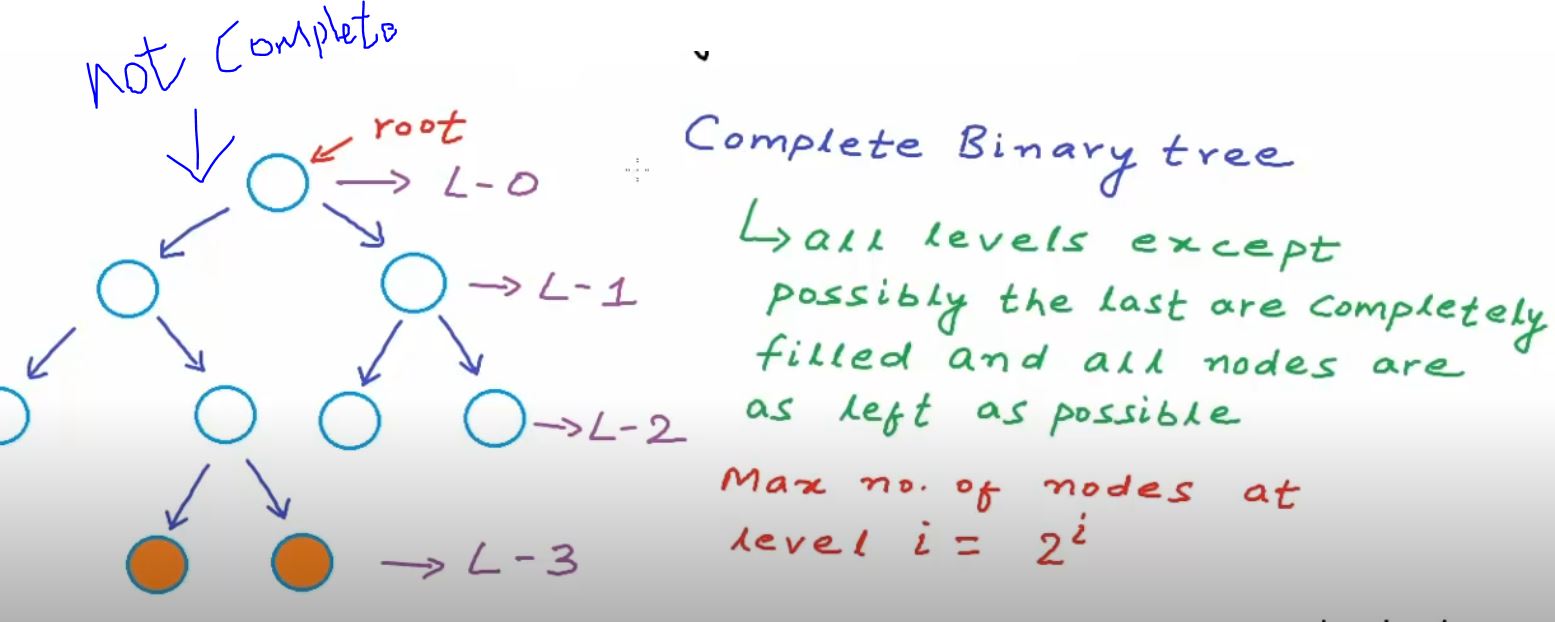 not Complete
root
L-0
L-1
L-2
L-3
Complete Binary tree
all levels except
possibly the last are completely
filled and all nodes are
as left as possible
Max no. of nodes at
level i = 2^i